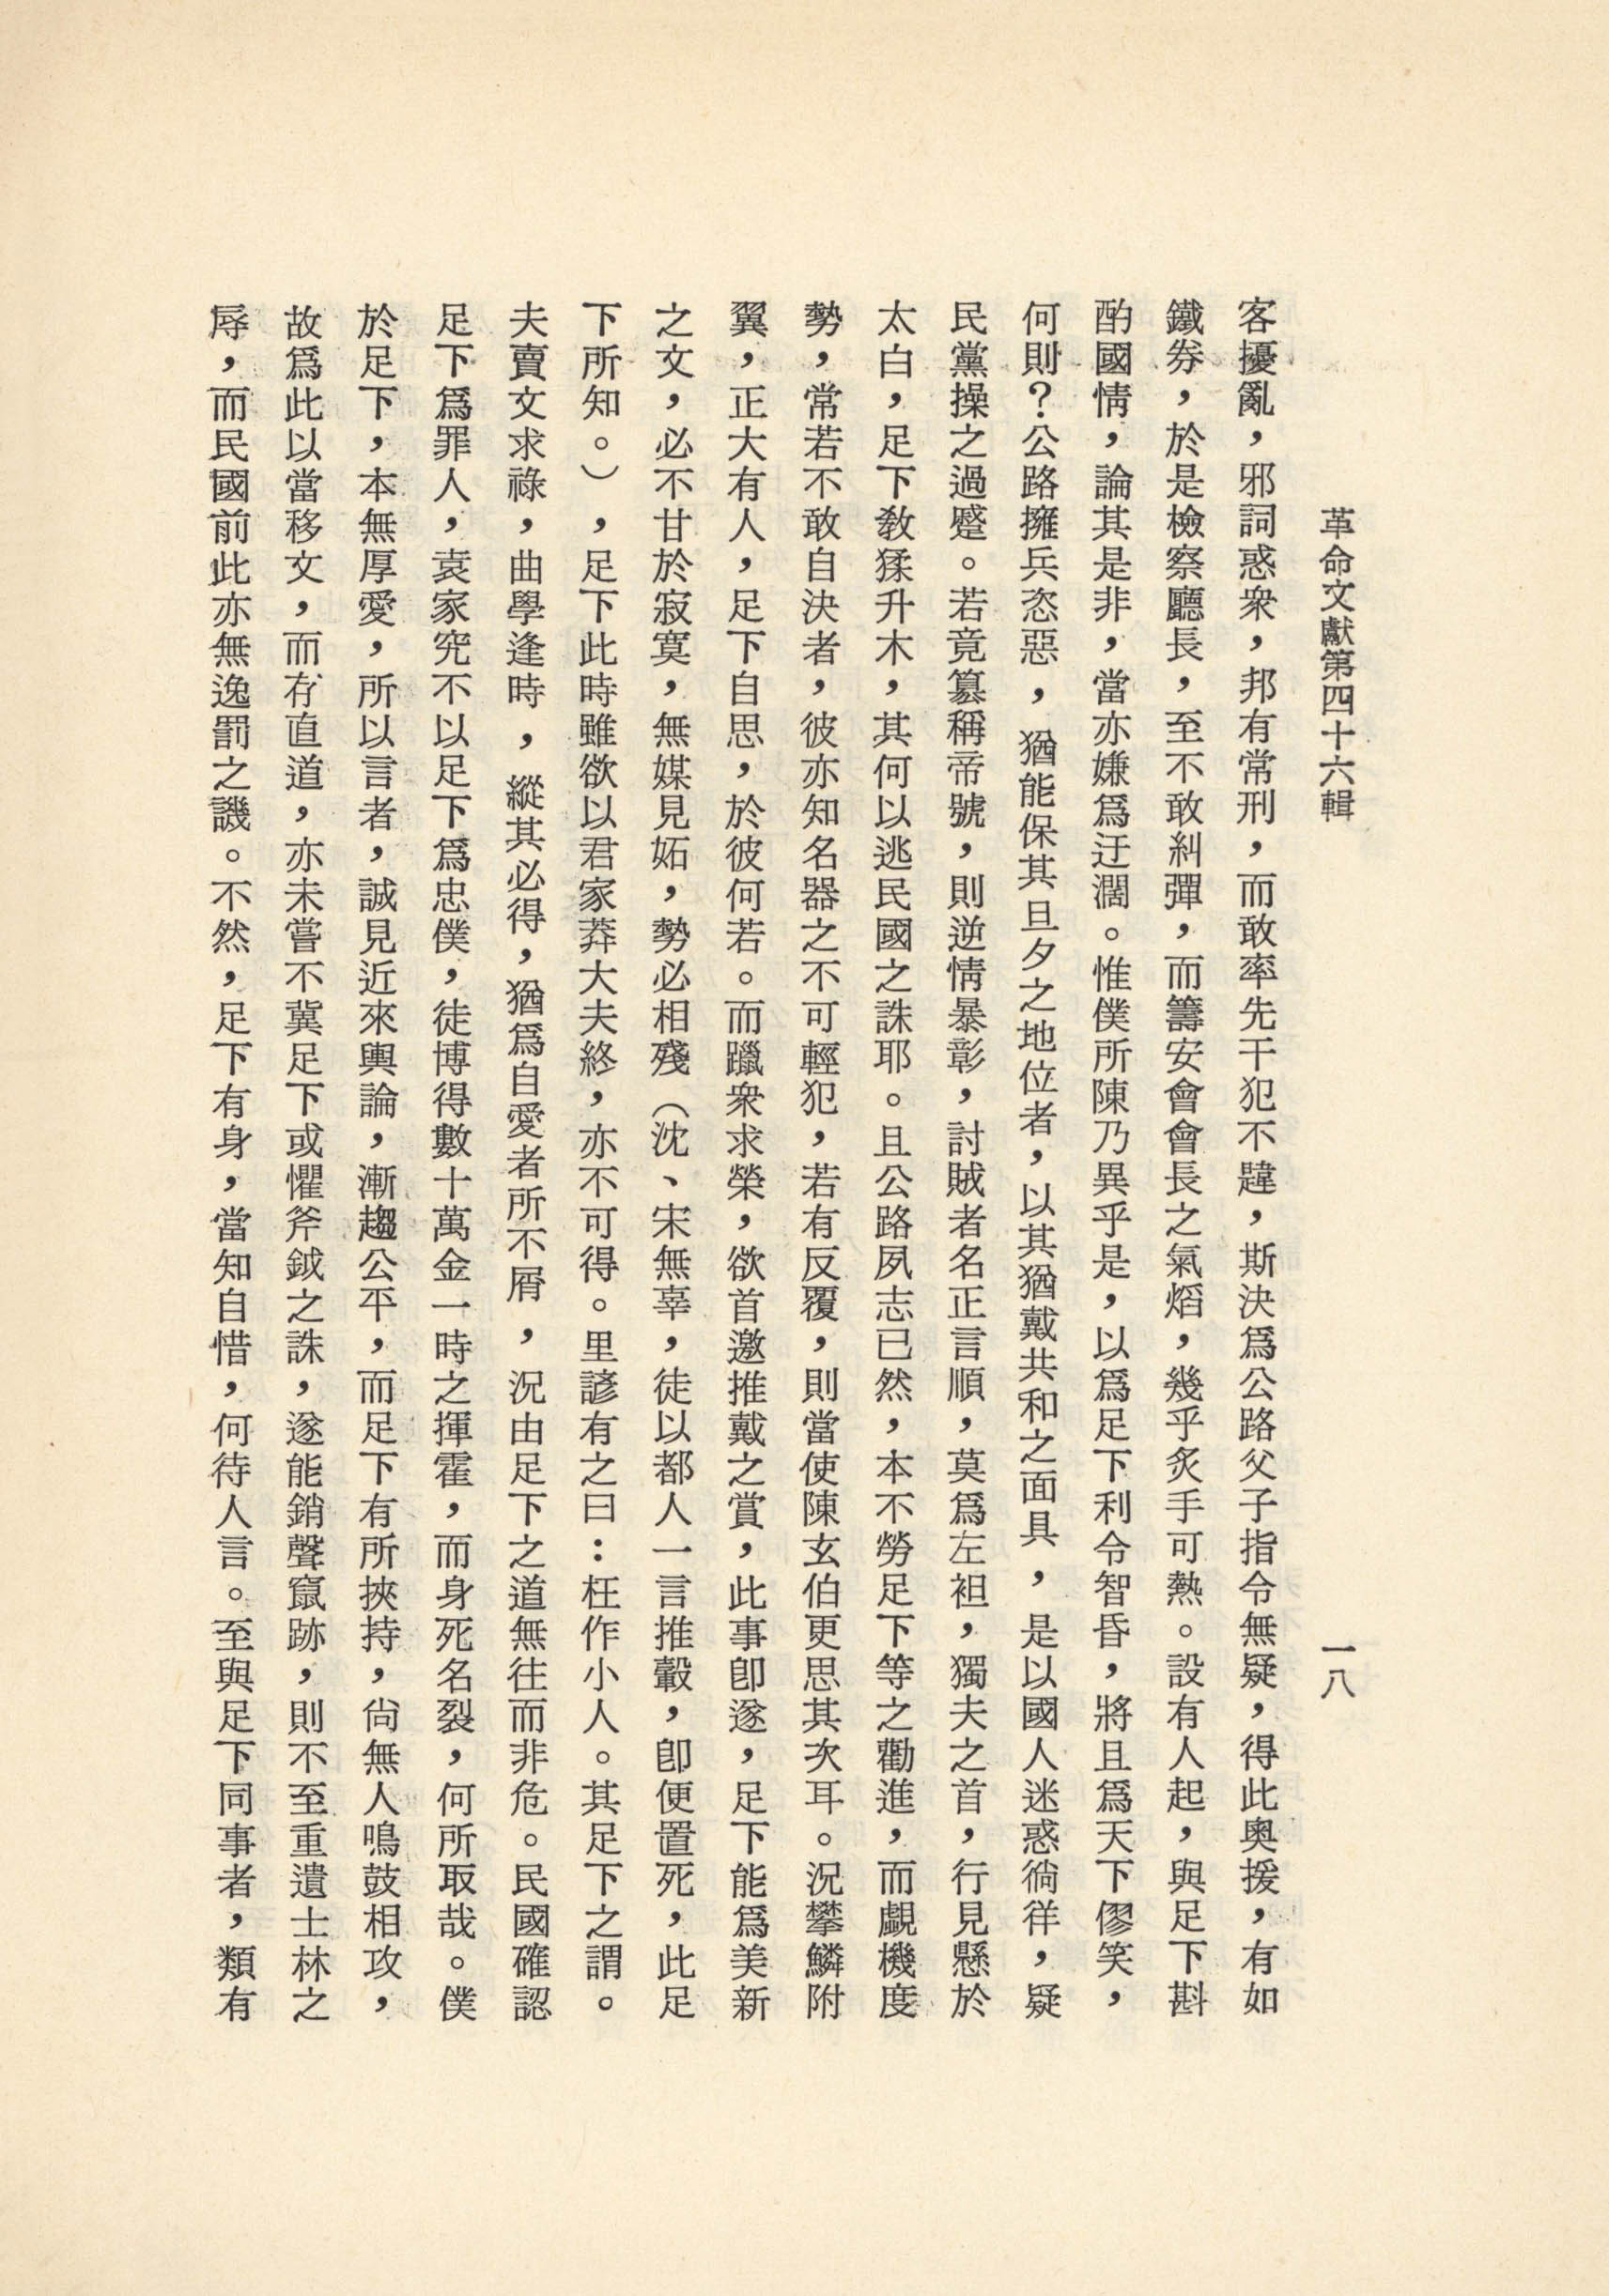 革命文獻第四十六輯
一八
客擾亂，邪詞惑衆，邦有常刑，而敢率先干犯不韙，斯決爲公路父子指令無疑，得此奧援，有如
鐵券，於是檢察廳長，至不敢糾彈，而籌安會會長之氣焰，幾乎炙手可熱。設有人起，與足下斟
酌國情，論其是非，當亦嫌爲迂濶。惟僕所陳乃異乎是，以爲足下利令智昏，將且爲天下僇笑，
何則？公路擁兵恣惡，猶能保其旦夕之地位者，以其猶戴共和之面具，是以國人迷惑徜徉，疑
民黨操之過蹙。若竟簒稱帝號，則逆情暴彰，討賊者名正言順，莫爲左袒，獨夫之首，行見懸於
太白，足下敎猱升木，其何以逃民國之誅耶。且公路夙志已然，本不勞足下等之勸進，而覷機度
勢，常若不敢自決者，彼亦知名器之不可輕犯，若有反覆，則當使陳玄伯更思其次耳。況攀鱗附
翼，正大有人，足下自思，於彼何若。而躐衆求榮，欲首邀推戴之賞，此事卽遂，足下能爲美新
之文，必不甘於寂寞，無媒見妬，勢必相殘（沈、宋無辜，徒以都人一言推轂，卽便置死，此足
下所知。），足下此時雖欲以君家莽大夫終，亦不可得。里諺有之曰：枉作小人。其足下之謂。
夫賣文求祿，曲學逢時，縱其必得，猶爲自愛者所不屑，況由足下之道無往而非危。民國確認
足下爲罪人，袁家究不以足下爲忠僕，徒博得數十萬金一時之揮霍，而身死名裂，何所取哉。僕
於足下，本無厚愛，所以言者，誠見近來輿論，漸趨公平，而足下有所挾持，尙無人鳴鼓相攻，
故爲此以當移文，而存直道，亦未嘗不冀足下或懼斧鉞之誅，遂能銷聲竄跡，則不至重遺士林之
辱，而民國前此亦無逸罰之譏。不然，足下有身，當知自惜，何待人言。至與足下同事者，類有